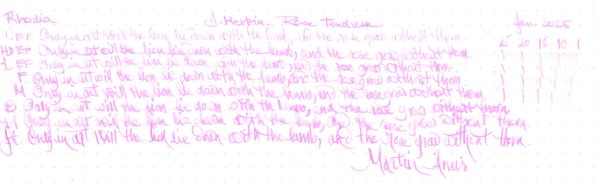 Rhodia J. Herbin - Rose Tendresse Jan 2025
EF Only in art will the lion lie down with the lamb, and the rose grow without thorn. 20 15 10 1
EF Only in art will the lion lie down with the lamb, and the rose grow without thorn.
1 EF Only in art will the lion lie down with the lamb, and the rose grow without thorn.
F Only in art will the lion lie down with the lamb, and the rose grow without thorn
M Only in art will the lion lie down with the lamb, and the rose grow without thorn.
B Only in art will the lion lie down with the lamb, and the rose grow without thorn.
Only in art will the lion lie down with the lamb, and the rose grow without thorn.
Only in art will the lion lie down with the lamb, and the rose grow without thorn.
Martin Amis